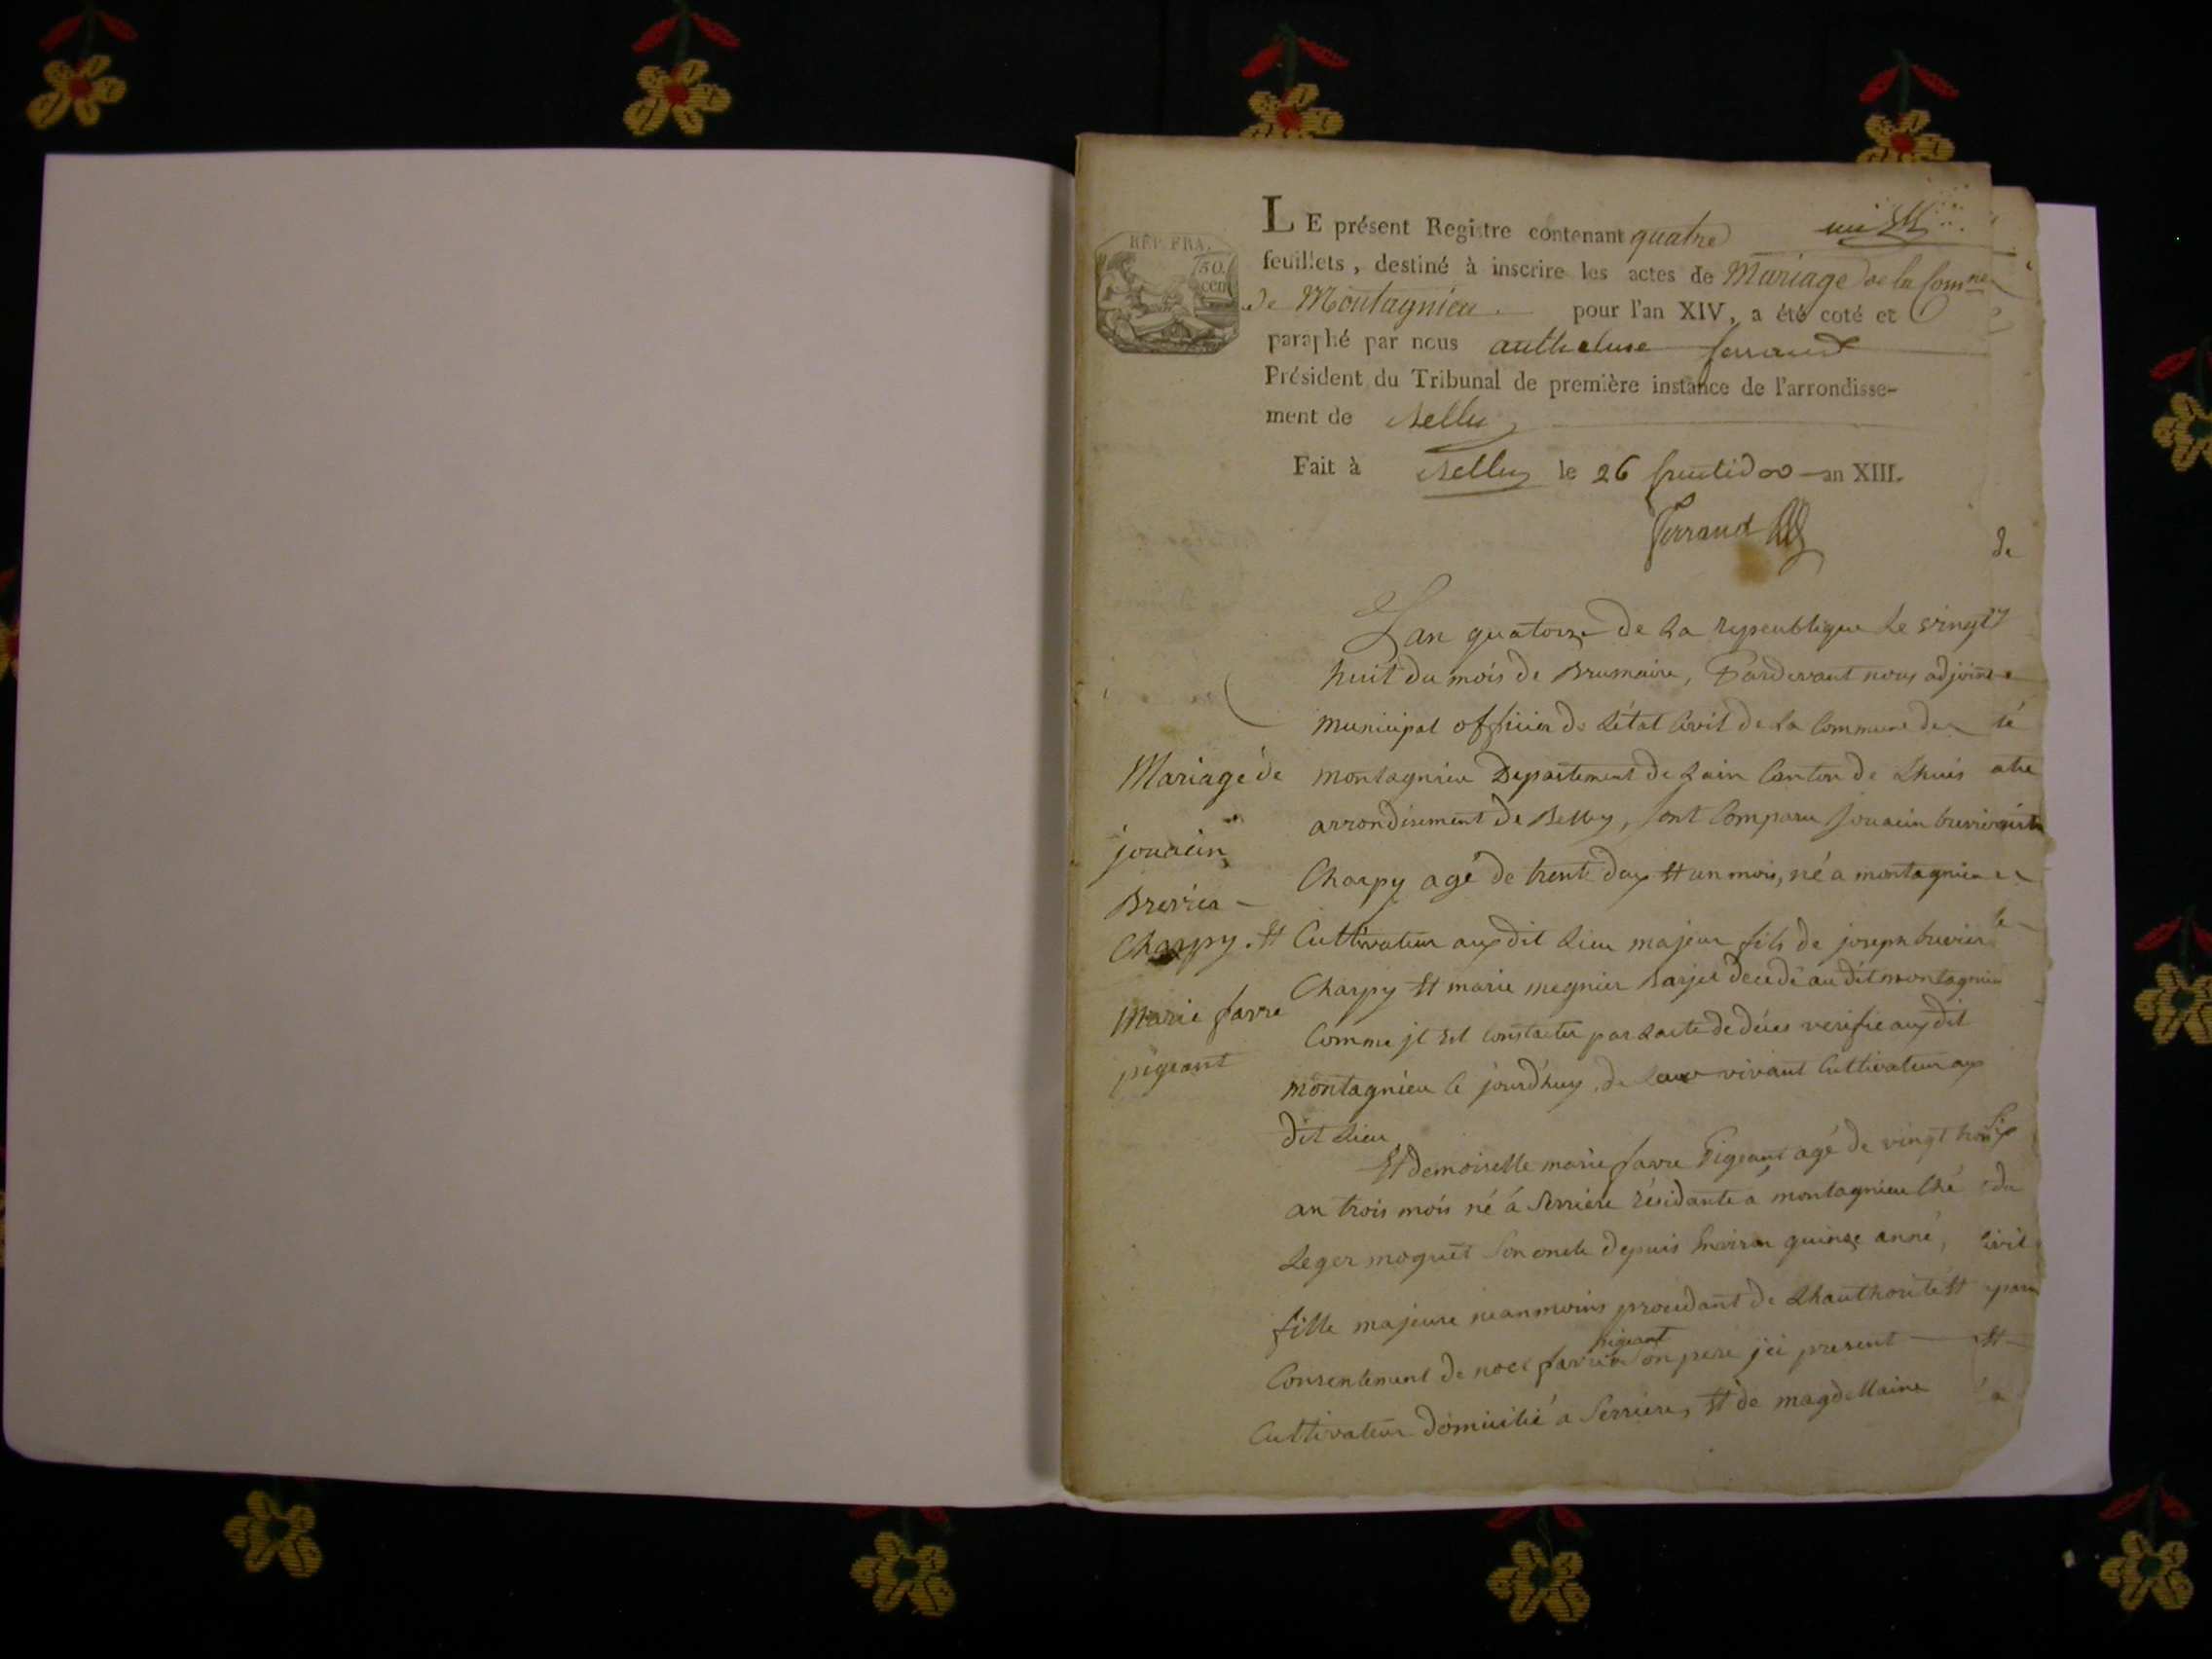 RÉP. FRA.
50.
cen
LE présent Registre contenant quatre
feuillets, destiné à inscrire les actes de Mariage de la Comne
de Montagnieu. pour l'an XIV, a été coté et
paraphé par nous anthelme ferrand
Président du Tribunal de première instance de l'arrondisse-
ment de Belley
Fait à Belley le 26 fructidor an XIII.
Ferrand
Mariage de
jouacin
Brevier
Charpy. Et
Marie favre
pigeant
Lan quatorze de la republique le vingt
huit du mois de Brumaire, Pardevant nous adjoint
municipal officier de létat civil de la Commune de
montagnieu Departement de Lain Canton de Lhuis
arrondisement de Belley, sont Comparu jouacin brevier
Charpy agé de trente deux Et un mois, né a montagnieu
Cultivateur aux dit Lieu majeur fils de joseph brevier
Charpy Et marie megnier Barjet decedé au dit montagnieu
Comme jl Est Constater par Lacte de déces verifie aux dit
montagnieu Ce jourd'huy, de vivant Cultivateur aux
dit Lieu
Et demoiselle marie favre Pigeant agé de vingt
an trois mois né á Serriere résidante a montagnieu Ché
Leger moguet Son oncle depuis Environ quinze anné,
fille majeure neanmoins procedant de Lhauthorité Et
pigeant
Consentement de noel favre Son pere jci present
Cultivateur domicilié a Serriere, Et de magdellaine
de
té
du
civil
Et
a